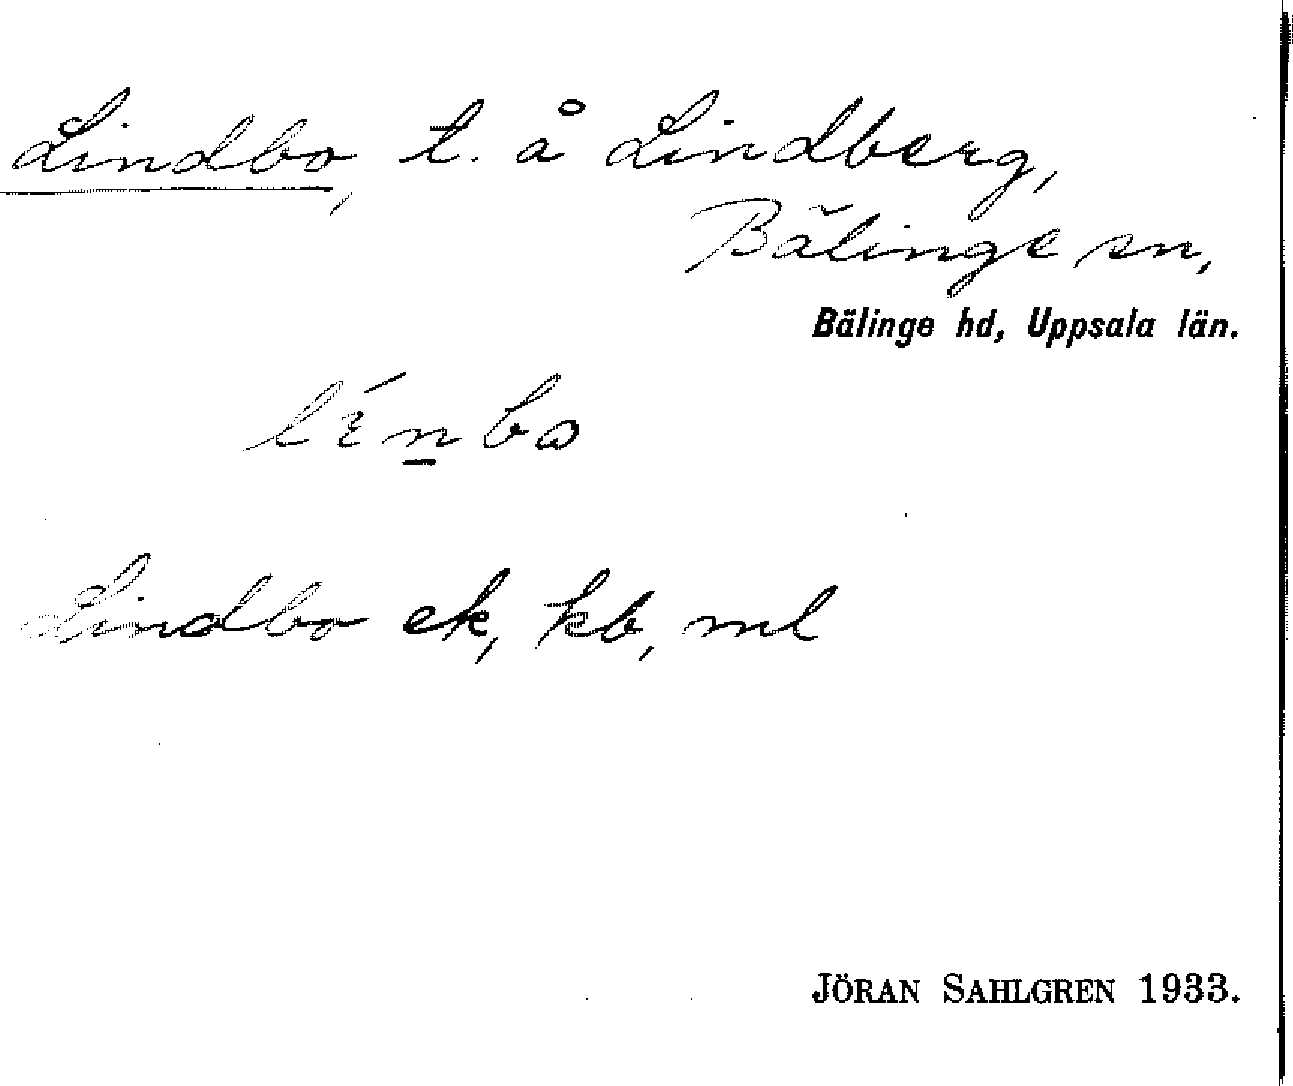 Lindbo, t. å Lindberg,
Bälinge sn,
Bälinge hd, Uppsala län.
Lindbo ek, kb, ml
JÖRAN SAHLGREN 1933.